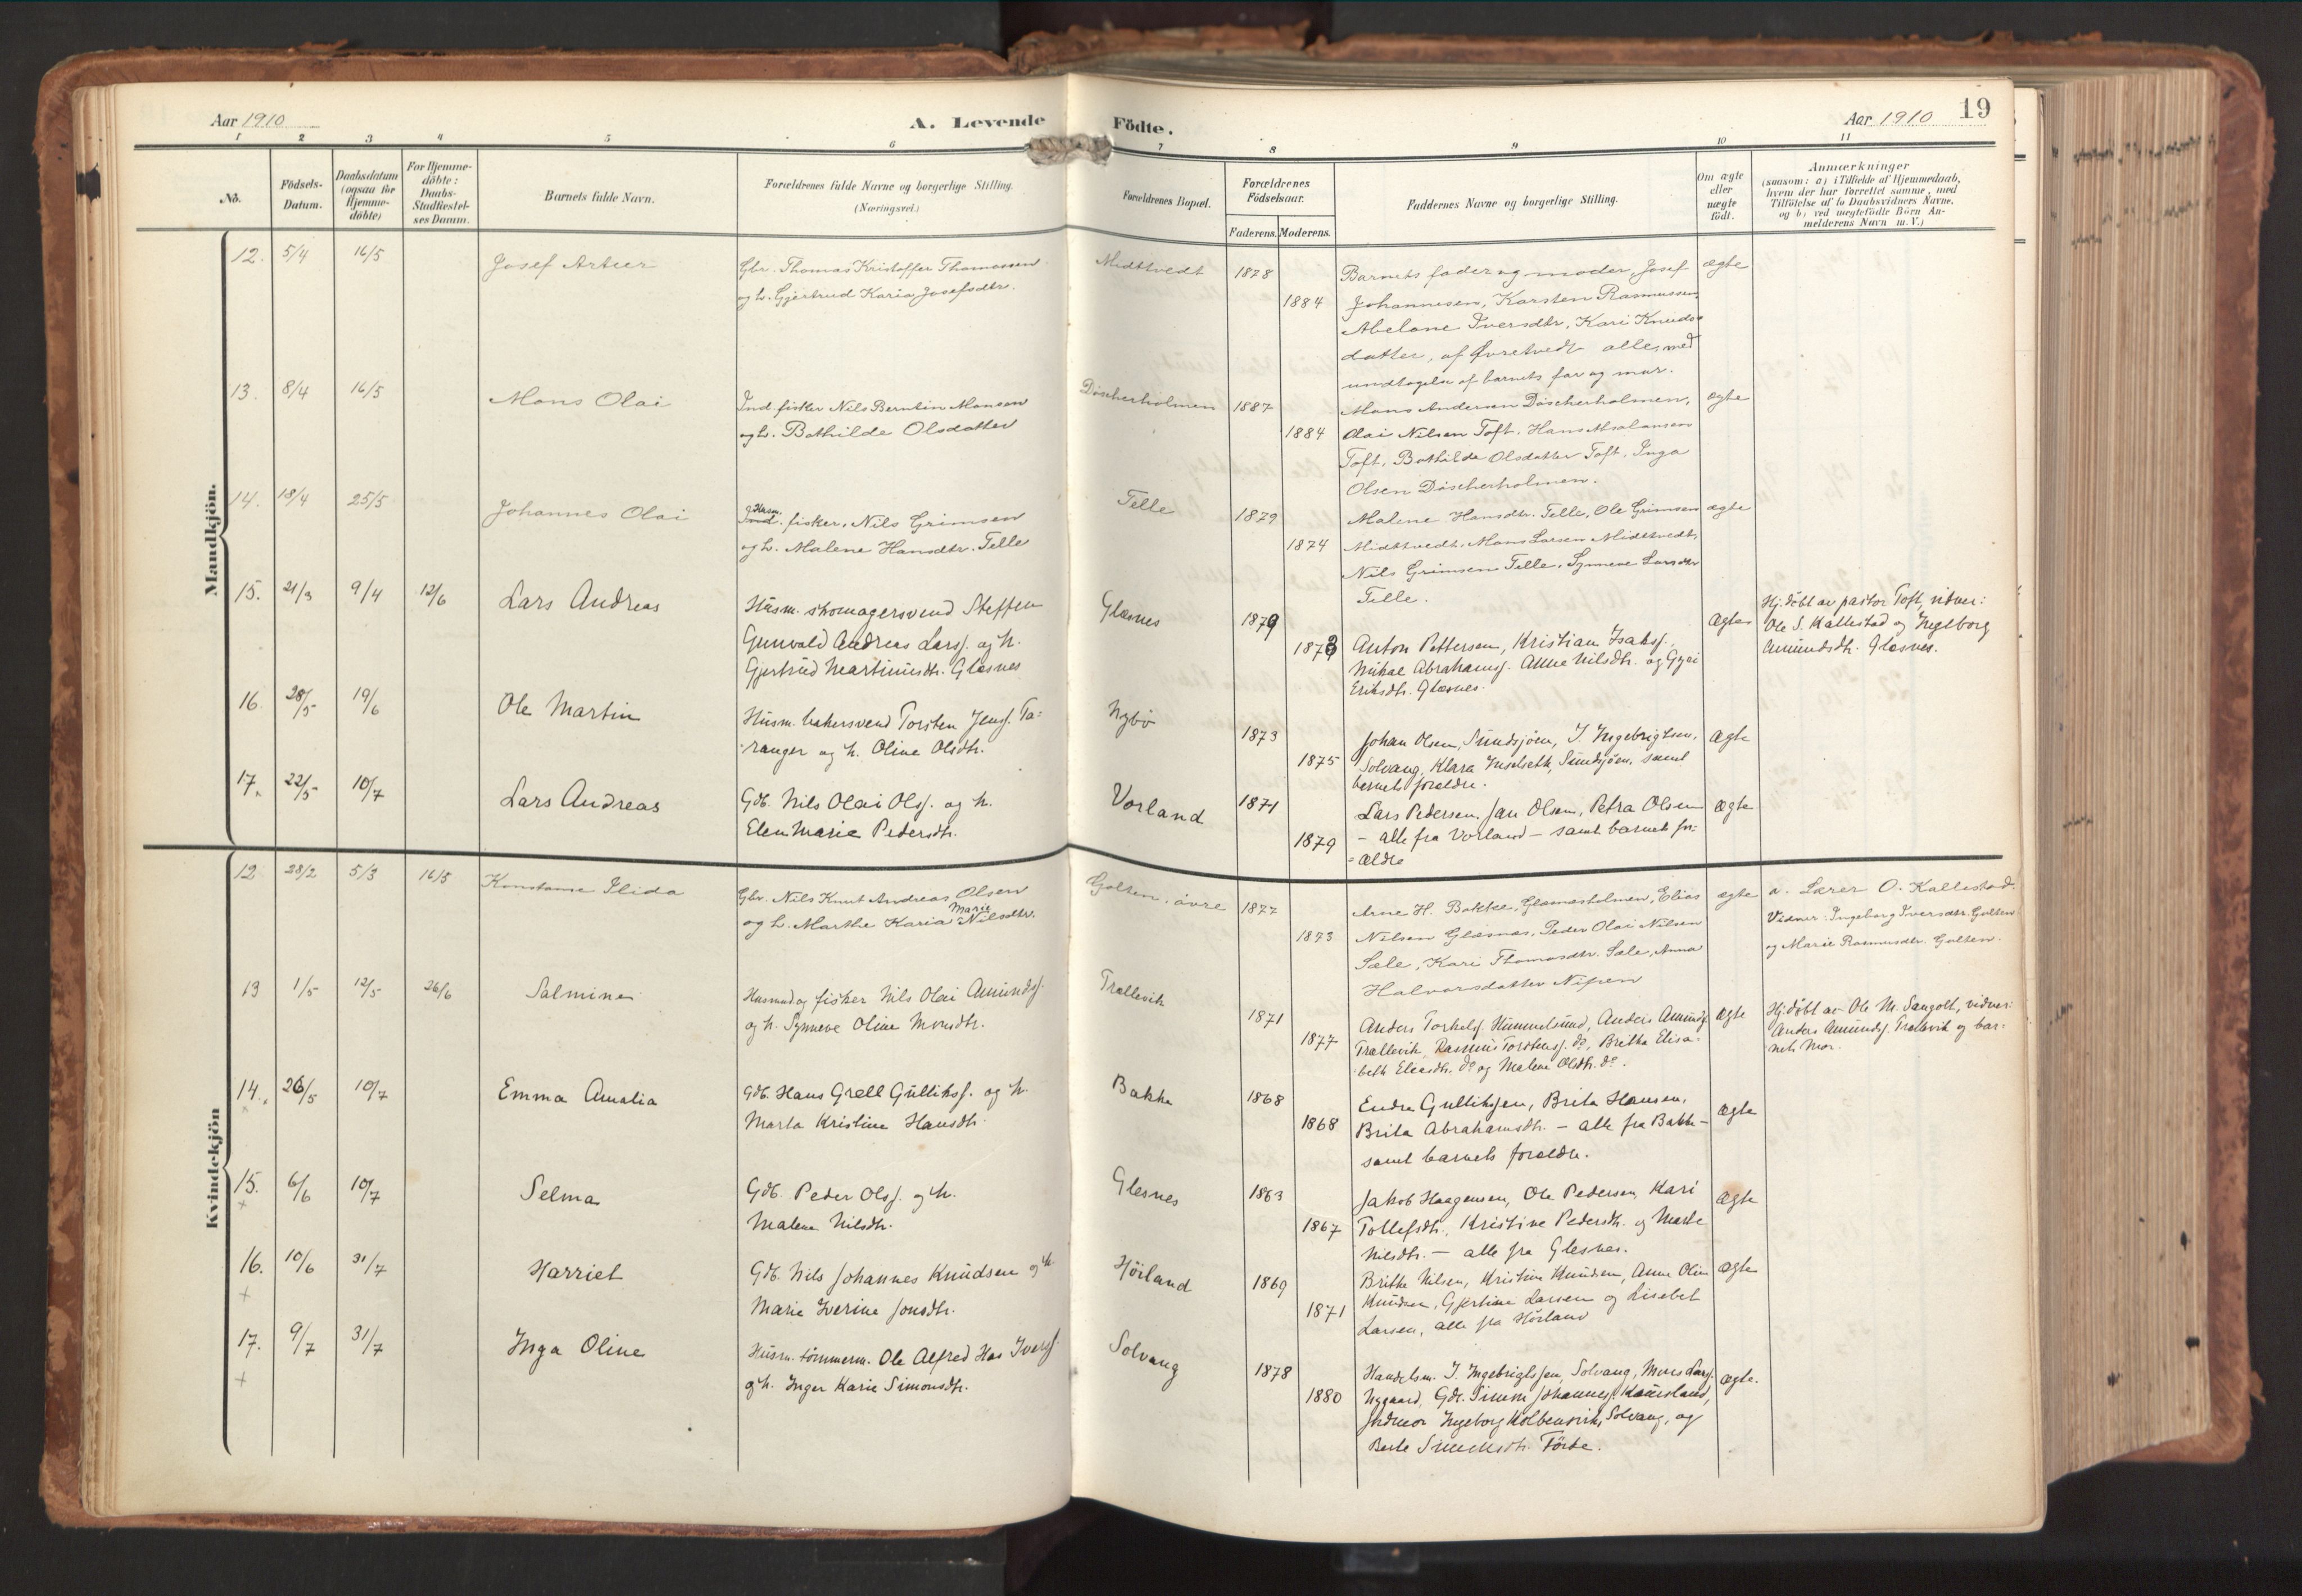 Aar 1910
A. Levende
Födte.
Aar 1910
19
1 2 3 4 5 6 7 8 9 10 11
No.
Födsels-
Datum.
Daabsdatum
(ogsaa for
Hjemme-
döbte)
For Hjemme-
döbte:
Daabs-
Stadfæstel-
ses Datum.
Barnets fulde Navn.
Forældrenes fulde Navne og borgerlige Stilling.
(Næringsvei.)
Forældrenes Bopæl.
Forældrenes
Födselsaar.
Faderens. Moderens.
Faddernes Navne og borgerlige Stilling.
Om ægte
eller
uægte
födt.
Anmærkninger
(saasom: a) i Tilfælde af Hjemmedaab,
hvem der har forrettet samme, med
Tilföielse af to Daabsvidners Navne,
og b) ved uægtefödte Börn An-
melderens Navn m. V.)
Mandkjön.
12. 5/4 16/5
Josef Artur
Gbr. Thomas Kristoffer Thomassen
og h. Gjertrud Karia Josefsdtr.
Midttvedt
1878
1884
Barnets fader og moder, Josef
Johannesen, Karsten Rasmussen,
Abelone Iversdtr, Kari Knuds-
datter, af Øvretvedt alle, med
undtagelse af barnets far og mor.
ægte
13. 8/4 16/5
Mons Olai
Ind. fisker Nils Berntin Monsen
og h. Bothilde Olsdatter
Döscherholmen
1887
1884
Mons Andersen Döscherholmen,
Olai Nilsen Toft, Hans Absalonsen
Toft, Bothilde Olsdatter Toft, Inga
Olsen Döscherholmen.
ægte
14. 18/4 25/5
Johannes Olai
Husm.
Ind. fisker, Nils Grimsen
og h. Malene Hansdtr. Telle
Telle
1879
1874
Malene Hansdtr. Telle, Ole Grimsen
Midttvedt, Mons Larsen Midttvedt,
Nils Grimsen Telle, Synneve Larsdtr
Telle.
ægte
15. 21/3 9/4 12/6
Lars Andreas
Husm. skomagersvend Steffen
Gunvald Andreas Larss. og h.
Gjertrud Martinusdtr. Glesnes
Glæsnes
1879
1873
Anton Pettersen, Kristian Isakss.,
Mikal Abrahams., Anne Nilsdtr. og Gyri
Eriksdtr. Glæsnes.
ægte
Hj. döbt av pastor Toft, vidner:
Ole S. Kallestad og Ingeborg
Amundsdtr. Glesnes.
16. 28/5 19/6
Ole Martin
Husm. bakersvend Torsten Jens. Ta-
ranger og h. Oline Olsdtr.
Nybö
1873
1875
Johan Olsen, Sundsjöen, I. Ingebrigtsen,
Solvang, Klara Inselseth, Sundsjöen, samt
barnets forældre.
ægte
17. 22/5 10/7
Lars Andreas
Gdb. Nils Olai Ols. og h.
Elen Marie Pedersdtr.
Vorland
1871
1879
Lars Pedersen, Jan Olsen, Petra Olsen
- alle fra Vorland - samt barnets for-
ældre
ægte
Kvindekjön
12. 28/2 5/3 16/5
Konstanse Ilida
Gbr. Nils Knut Andreas Olsen
Marie
og h. Marthe Karia Nilsdtr.
Golten, övre
1877
1873
Arne H. Bakke, Glæsnesholmen, Elias
Nilsen Glæsnes, Peder Olai Nilsen
Sæle, Kari Thomasdtr. Sæle, Anna
Halvorsdatter Nipen
ægte
a. Lærer O. Kallestad.
Vidner: Ingeborg Iversdtr. Golten
og Marie Rasmusdtr. Golten.
13 1/5 12/5 26/6
Salmine
Husmand og fisker Nils Olai Amunds.
og h. Synneve Oline Monsdtr.
Trællevik
1871
1877
Anders Torkels. Hummelsund, Anders Amunds.
Trællevik, Rasmus Torstens. do, Britha Elisa-
beth Eliasdtr. do og Malene Olsdtr. do.
ægte
Hj. döbt av Ole M. Sangolt, vidner:
Anders Amunds. Trælevik og bar-
nets Mor.
14. 26/5 10/7
Emma Amalia
Gdb. Hans Grell Gulliks. og h.
Marta Kristine Hansdtr.
Bakke
1868
1868
Endre Gulliksen, Brita Hansen,
Brita Abrahamsdtr. - alle fra Bakke -
samt barnets forældre.
ægte
15. 6/6 10/7
Selma
Gdb. Peder Ols. og h.
Malene Nilsdtr.
Glesnes
1863
1867
Jakob Haagensen, Ole Pedersen, Kari
Tollefsdtr., Kristine Pedersdtr. og Marte
Nilsdtr. - alle fra Glesnes.
ægte
16. 10/6 31/7
Harriet
Gdb. Nils Johannes Knudsen og h.
Marie Iverine Jonsdtr.
Hörland
1869
1871
Brithe Nilsen, Kristine Knudsen, Anne Oline
Knudsen, Gjertine Larsen og Lisebet
Larsen, alle fra Hörland
ægte
17. 9/7 31/7
Inga Oline
Husm. tömmerm. Ole Alfred Has Ivers.
og h. Inger Karie Simonsdtr.
Solvang
1878
1880
Handelsm. I. Ingebrigtsen, Solvang, Mons Lars.
Nygaard, Gdr. Simon Johannes. Kausland,
Jordmor Ingeborg Kolbensvik, Solvang, og
Berte Simonsdtr. Förde.
ægte.